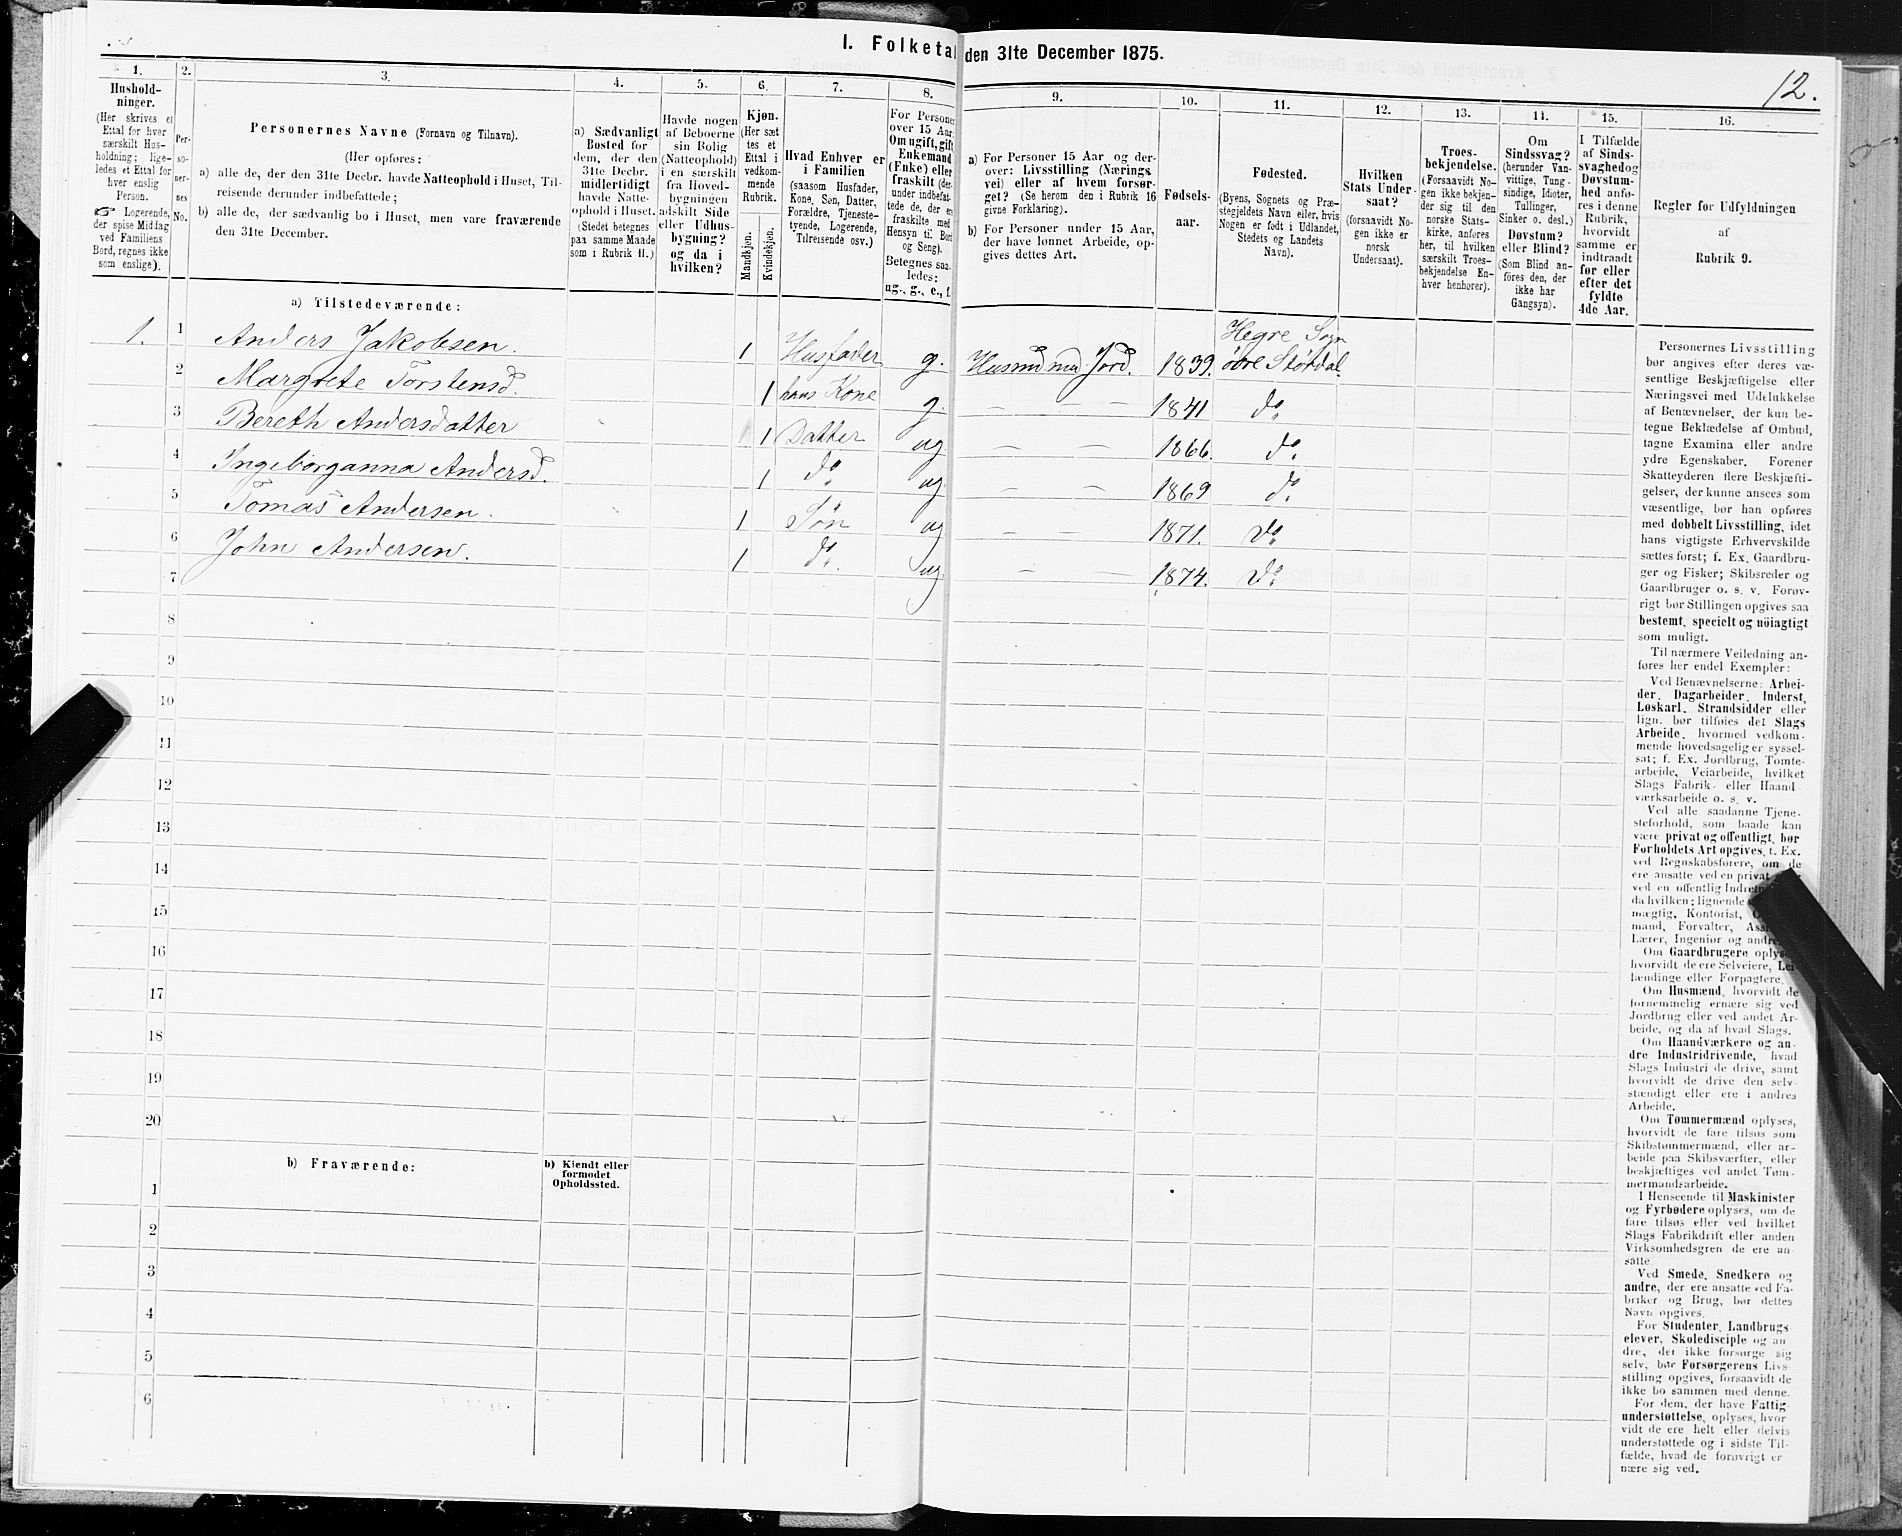 I. Folketal den 31te December 1875.
12.
1.
Hushold-
ninger.
(Her skrives et
Ettal for hver
særskilt Hus-
holdning; lige-
ledes et Ettal for
hver enslig
Person.
☞ Logerende,
der spise Middag
ved Familiens
Bord, regnes ikke
som enslige).
2.
Per-
so-
ner-
nes
No.
3.
Personernes Navne (Fornavn og Tilnavn).
(Her opføres:
a) alle de, der den 31te Decbr. havde Natteophold i Huset, Til-
reisende derunder indbefattede;
b) alle de, der sædvanlig bo i Huset, men vare fraværende
den 31te December.
4.
a) Sædvanligt
Bosted for
dem, der den
31te Decbr.
midlertidigt
havde Natte-
ophold i Huset.
(Stedet betegnes
paa samme Maade
som i Rubrik 11.)
5.
Havde nogen
af Beboerne
sin Bolig
(Natteophold)
i en særskilt
fra Hoved-
bygningen
adskilt Side
eller Udhus-
bygning?
og da i
hvilken?
6.
Kjøn.
(Her sæt
tes et
Ettal i
vedkom-
mende
Rubrik.
Mandkjøn.
Kvindekjøn.
7.
Hvad Enhver er
i Familien
(saasom Husfader,
Kone, Søn, Datter,
Forældre, Tjeneste-
tyende, Logerende,
Tilreisende osv.)
8.
For Personer
over 15 Aar:
Om ugift, gift,
Enkemand
(Enke) eller
fraskilt (der-
under indbefat-
tede de, der er
fraskilte med
Hensyn til Bord
og Seng).
Betegnes saa-
ledes:
ug., g., e., f.
9.
a) For Personer 15 Aar og der-
over: Livsstilling (Nærings
vei) eller af hvem forsør-
get? (Se herom den i Rubrik 16
givne Forklaring).
b) For Personer under 15 Aar,
der have lønnet Arbeide, op-
gives dettes Art.
10.
Fødsels-
aar.
11.
Fødested.
(Byens, Sognets og Præ-
stegjeldets Navn eller, hvis
Nogen er født i Udlandet,
Stedets og Landets
Navn).
12.
Hvilken
Stats Under-
saat?
(forsaavidt No-
gen ikke er
norsk
Undersaat).
13.
Troes-
bekjendelse.
(Forsaavidt No-
gen ikke bekjen-
der sig til den
norske Stats-
kirke, anføres
her, til hvilken
særskilt Troes-
bekjendelse En-
hver henhører).
14.
Om
Sindssvag?
(herunder Van-
vittige, Tung-
sindige, Idioter,
Tullinger,
Sinker o. desl.)
Døvstum?
eller Blind?
(Som Blind an-
føres den, der
ikke har
Gangsyn).
15.
I Tilfælde
af Sinds-
svaghed og
Døvstum-
hed anfø-
res i denne
Rubrik,
hvorvidt
samme er
indtraadt
før eller
efter det
fyldte
4de Aar.
16.
Regler for Udfyldningen
af
Rubrik 9.
a) Tilstedeværende:
1. 1 Anders Jakobsen. 1 Husfader g. Husmd med Jord. 1839. Hegre Sogn
øvre Størdal.
2 Margrete Torstensd. 1 hans Kone g. — — 1841 do
3 Bereth Andersdatter 1 Datter ug — — 1866. do
4 Ingeborganna Andersd. 1 do ug — — 1869 do
5 Tomas Andersen. 1 Søn ug — — 1871. do
6 John Andersen. 1 do. ug — — 1874. do
7
8
9
10
11
12
13
14
15
16
17
18
19
20
b) Fraværende:
b) Kjendt eller
formodet
Opholdssted.
1
2
3
4
5
6
Personernes Livsstilling
bør angives efter deres væ-
sentlige Beskjæftigelse eller
Næringsvei med Udelukkelse
af Benævnelser, der kun be-
tegne Beklædelse af Ombud,
tagne Examina eller andre
ydre Egenskaber. Forener
Skatteyderen flere Beskjæfti-
gelser, der kunne ansees som
væsentlige, bør han opføres
med dobbelt Livsstilling, idet
hans vigtigste Erhvervskilde
sættes først; f. Ex. Gaardbru-
ger og Fisker; Skibsreder og
Gaardbruger o. s. v. Forøv-
rigt bør Stillingen opgives saa
bestemt, specielt og nöiagtigt
som muligt.
Til nærmere Veiledning an-
føres her endel Exempler:
Ved Benævnelserne: Arbei-
der, Dagarbeider, Inderst,
Løskarl, Strandsidder eller
lign. bør tilføies det Slags
Arbeide, hvormed vedkom-
mende hovedsagelig er syssel-
sat; f. Ex. Jordbrug, Tomte-
arbeide, Veiarbeide, hvilket
Slags Fabrik- eller Haand-
værksarbeide o. s. v.
Ved alle saadanne Tjene-
steforhold, som baade kan
være privat og offentligt, bør
Forholdets Art opgives, f. Ex.
ved Regnskabsførere, om de
ere ansatte ved en privat
ved en offentlig
da hvilken; lignende
mægtig, Kontorist,
mand, Forvalter,
Lærer, Ingeniør og andre
Om Gaardbrugere oplyses,
hvorvidt de ere Selveiere, Lei-
lændinge eller Forpagtere.
Om Husmænd, hvorvidt de
fornemmelig ernære sig ved
Jordbrug eller ved andet Ar-
beide, og da af hvad Slags.
Om Haandværkere og an-
dre Industridrivende, hvad
Slags Industri de drive, samt
hvorvidt de drive den selv-
stændigt eller ere i andres
Arbeide.
Om Tømmermænd oplyses,
hvorvidt de fare tilsøs som
Skibstømmermænd, eller ar-
beide paa Skibsværfter, eller
beskjæftiges ved andet Tøm-
mermandsarbeide.
I Henseende til Maskinister
og Fyrbødere oplyses, om de
fare tilsøs eller ved hvilket
Slags Fabrikdrift eller anden
Virksomhedsgren de ere an-
satte.
Ved Smede, Snedkere og
andre, der ere ansatte ved Fa-
briker og Brug, bør dettes
Navn opgives.
For Studenter, Landbrugs
elever, Skoledisciple og an-
dre, der ikke forsørge sig
selv, bør Forsørgerens Livs-
stilling opgives, forsaavidt de
ikke bo sammen med denne.
For dem, der have Fattig-
understøttelse, oplyses, hvor-
vidt de ere helt eller delvis
understøttede og i sidste Til-
fælde, hvad de forøvrigt er
nære sig ved.